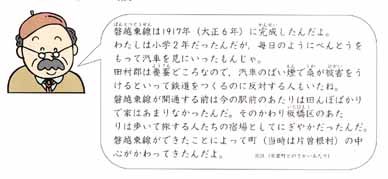 ばんえつとうせん　かんせい
磐越東線は1917年（大正6年）に完成したんだよ。
わたしは小学2年だったんだが、毎日のようにべんとうを
もって汽車を見にいったもんじゃ。
田村郡は養蚕どころなので、汽車のばい煙で桑が被害をう
けるといって鉄道をつくるのに反対する人もいたね。
磐越東線が開通する前は今の駅前のあたりは田んぼばかり
で家はあまりなかったんだ。そのかわり板橋区のあた
りは歩いて旅する人たちの宿場としてにぎやかだったんだ。
磐越東線ができたことによって町（当時は片曽根村）の中
心がかわってきたんだよ。